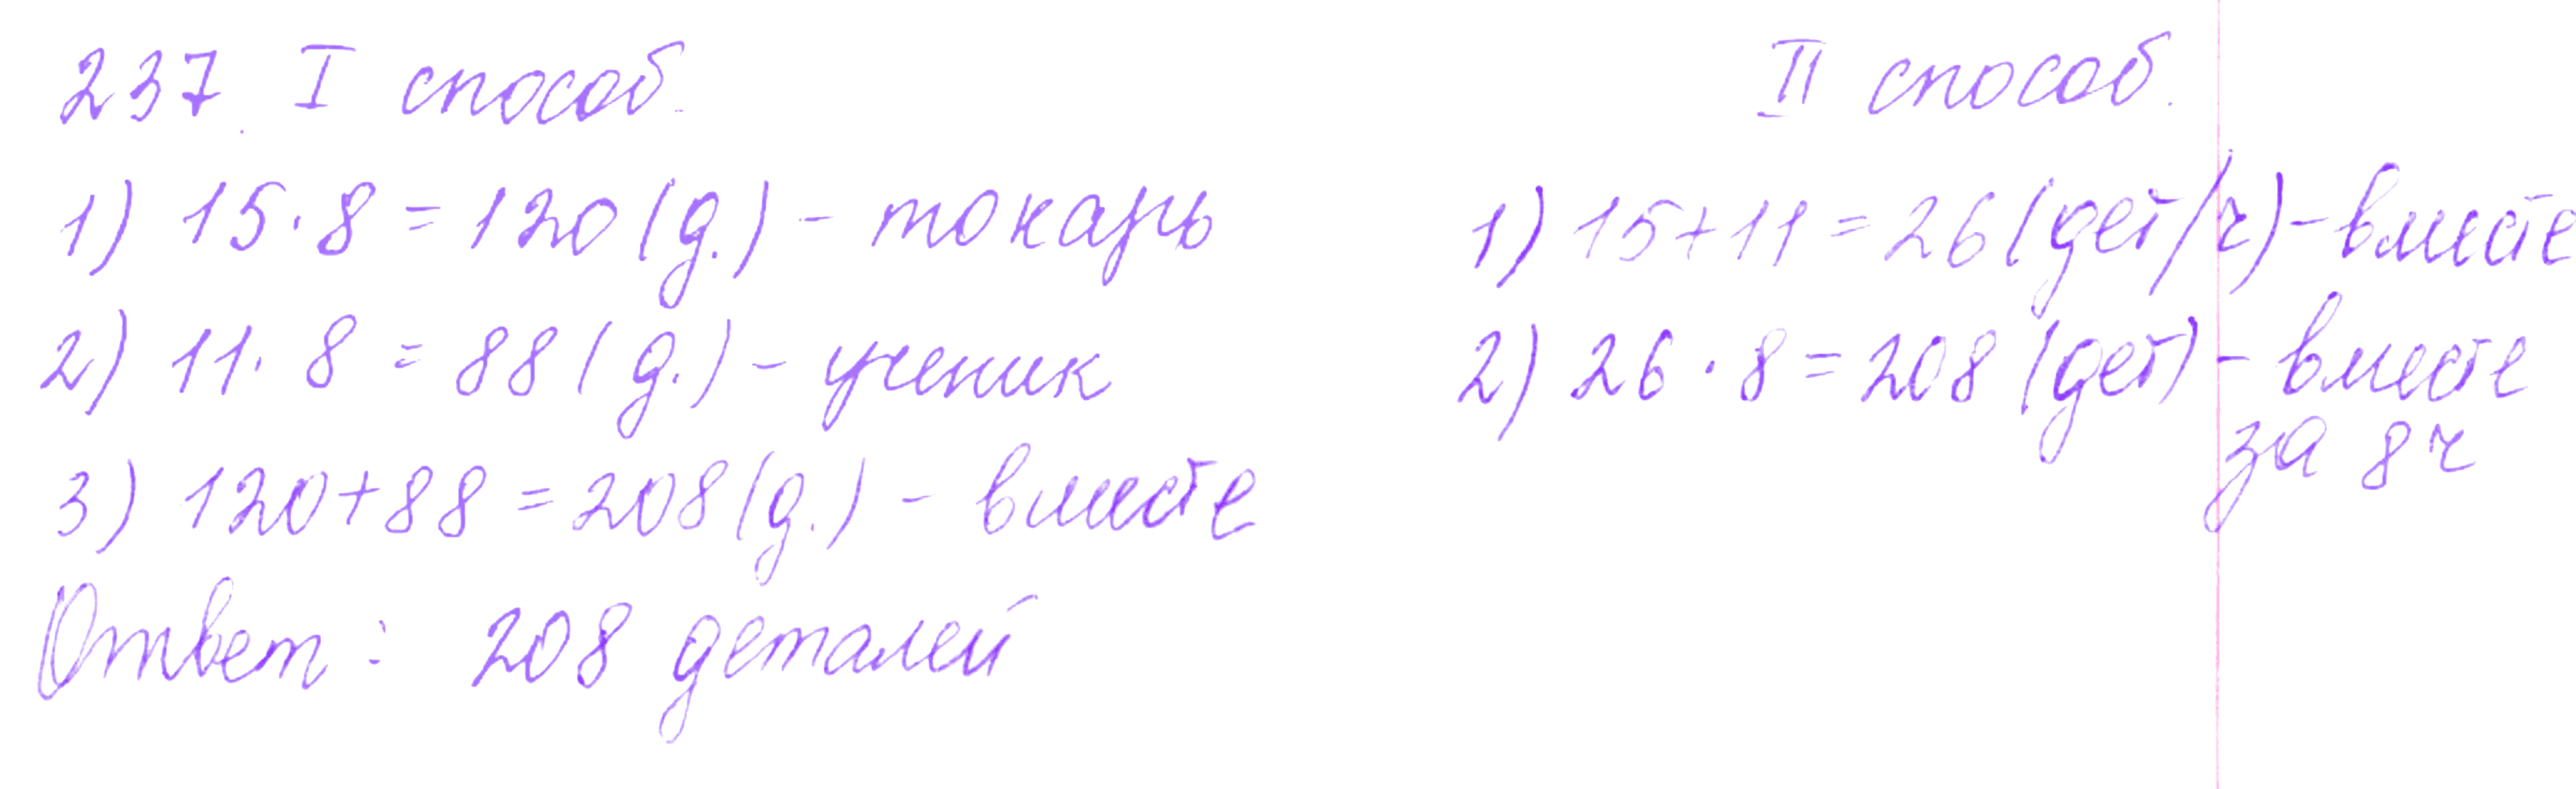 237. I способ.
1) 15·8 = 120 (д.) - токарь
2) 11·8 = 88 (д.) - ученик
3) 120+88 = 208 (д.) - вместе
Ответ: 208 деталей
II способ.
1) 15+11 = 26 (дет/ч) - вместе
2) 26·8 = 208 (дет) - вместе
за 8 ч